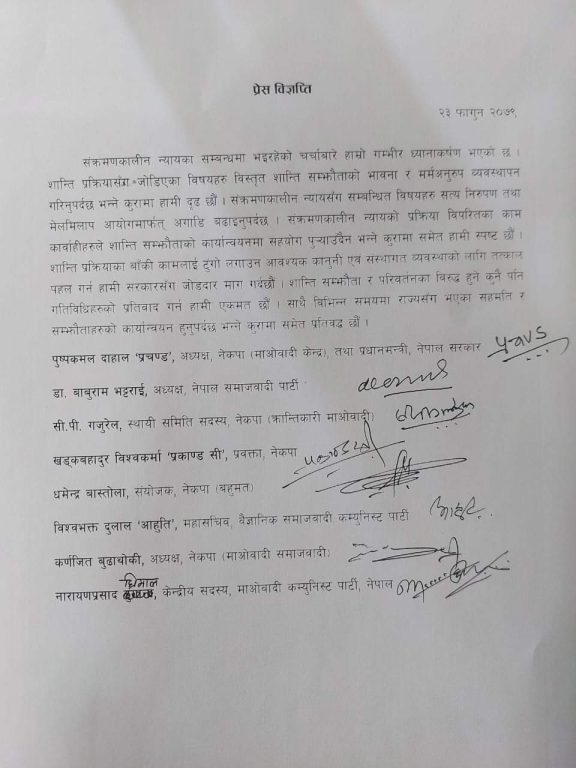 प्रेस विज्ञप्ति
२३ फागुन २०७९
संक्रमणकालीन न्यायका सम्बन्धमा भइरहेको चर्चाबारे हाम्रो गम्भीर ध्यानाकर्षण भएको छ ।
शान्ति प्रक्रियासँग जोडिएका विषयहरु विस्तृत शान्ति सम्झौताको भावना र मर्मअनुरुप व्यवस्थापन
गरिनुपर्दछ भन्ने कुरामा हामी दृढ छौं । संक्रमणकालीन न्यायसँग सम्बन्धित विषयहरु सत्य निरुपण तथा
मेलमिलाप आयोगमार्फत् अगाडि बढाइनुपर्दछ । संक्रमणकालीन न्यायको प्रक्रिया विपरितका काम
कार्वाहीहरुले शान्ति सम्झौताको कार्यान्वयनमा सहयोग पुऱ्याउदैन भन्ने कुरामा समेत हामी स्पष्ट छौं ।
शान्ति प्रक्रियाका बाँकी कामलाई टुंगो लगाउन आवश्यक कानुनी एवं संस्थागत व्यवस्थाको लागि तत्काल
पहल गर्न हामी सरकारसंग जोडदार माग गर्दछौं । शान्ति सम्झौता र परिवर्तनका विरुद्ध हुने कुनै पनि
गतिविधिहरुको प्रतिवाद गर्न हामी एकमत छौं । साथै विभिन्न समयमा राज्यसँग भएका सहमति र
सम्झौताहरुको कार्यान्वयन हुनुपर्दछ भन्ने कुरामा समेत प्रतिवद्ध छौं ।
पुष्पकमल दाहाल 'प्रचण्ड', अध्यक्ष, नेकपा (माओवादी केन्द्र), तथा प्रधानमन्त्री, नेपाल सरकार
डा. बाबुराम भट्टराई, अध्यक्ष, नेपाल समाजवादी पार्टी
सी.पी. गजुरेल, स्थायी समिति सदस्य, नेकपा (क्रान्तिकारी माओवादी)
खड्कबहादुर विश्वकर्मा 'प्रकाण्ड सी', प्रवक्ता, नेकपा
धमेन्द्र बास्तोला, संयोजक, नेकपा (बहुमत)
विश्वभक्त दुलाल 'आहुति', महासचिव, वैज्ञानिक समाजवादी कम्युनिस्ट पार्टी आहुति
कर्णजित बुढाथोकी, अध्यक्ष, नेकपा (माओवादी समाजवादी)
नारायणप्रसाद धिमाल, केन्द्रीय सदस्य, माओवादी कम्युनिस्ट पार्टी, नेपाल